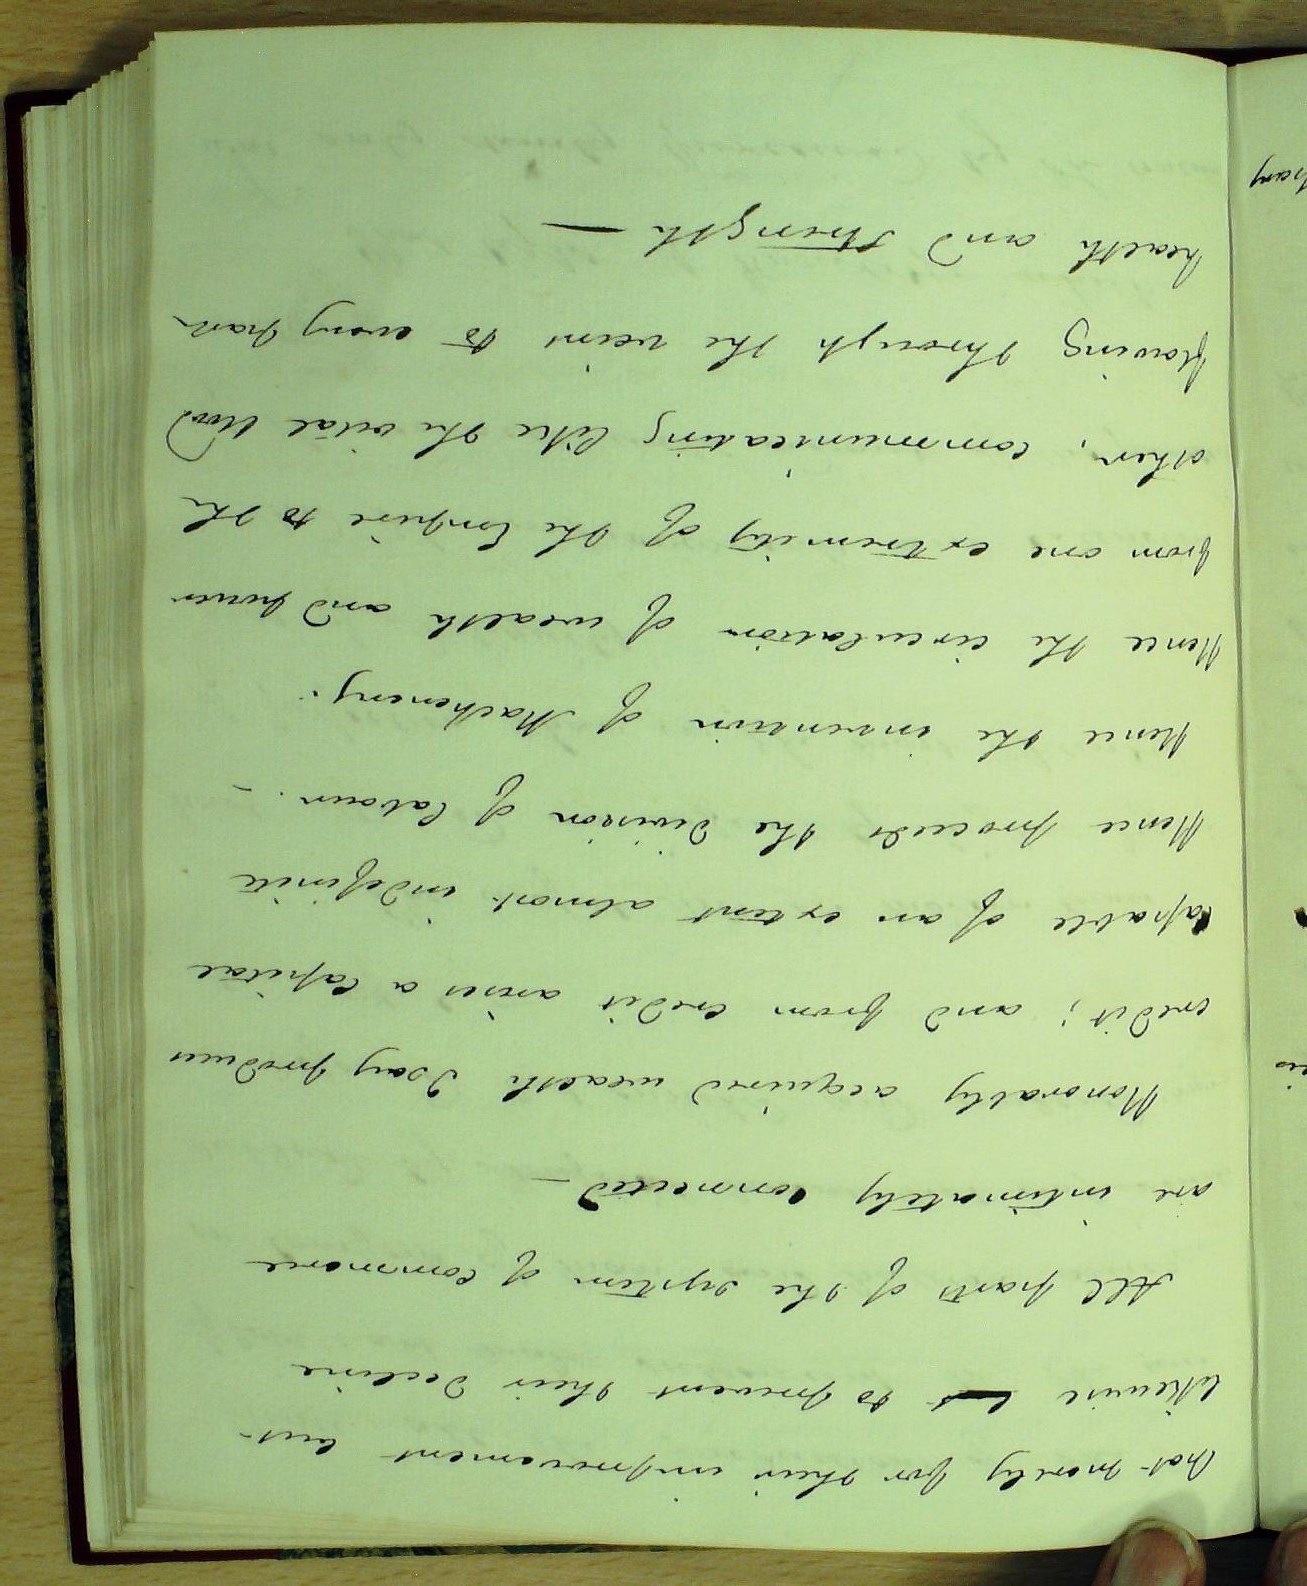 not merely for their improvement but
likewise to prevent their decline
All parts of the system of Commerce
are intimately connected —
Honorably acquired wealth I say produces
credit; and from Credit arises a Capital
capable of an extent almost indefinite
Hence proceeds the division of labour. —
Hence the invention of Machenery.
Hence the circulation of wealth and power
from one extremity of the Empire to the
other, communicating like the vital blood
flowing through the veins to every part
health and strength —